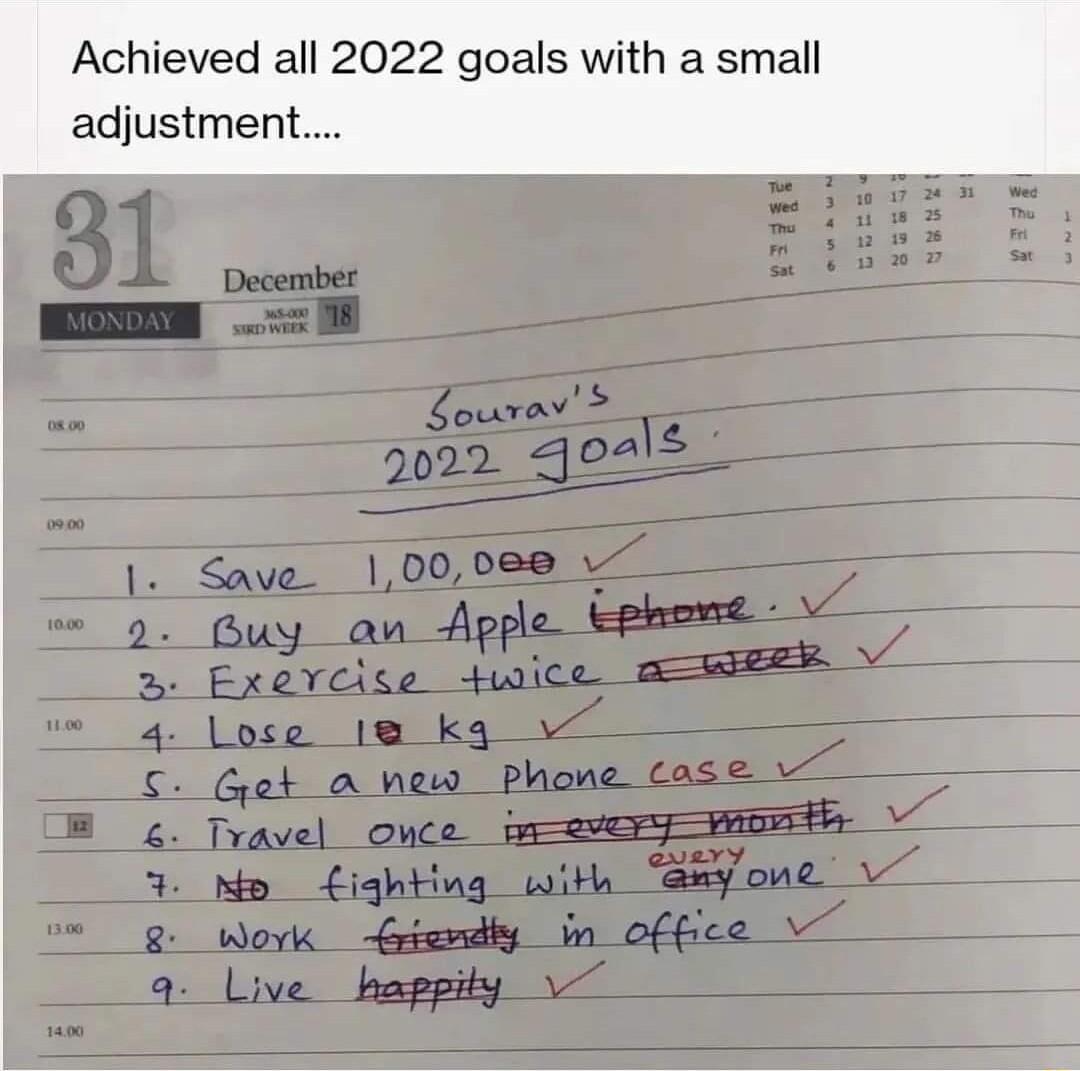 Achieved all 2022 goals with a small
adjustment....
31
December
MONDAY
365-000
53RD WEEK
'18
Tue 2 9
Wed 3 10 17 24 31
Thu 4 11 18 25
Fri 5 12 19 26
Sat 6 13 20 27
Wed
Thu 1
Fri 2
Sat 3
08.00
Sourav's
2022 goals.
09.00
1. Save 1,00,000 ✓
10.00
2. Buy an Apple iphone. ✓
3. Exercise twice a week ✓
11.00
4. Lose 10 kg ✓
5. Get a new phone case ✓
12
6. Travel once in every month ✓
every
7. No fighting with anyone ✓
13.00
8. Work friendly in office ✓
9. Live happily ✓
14.00